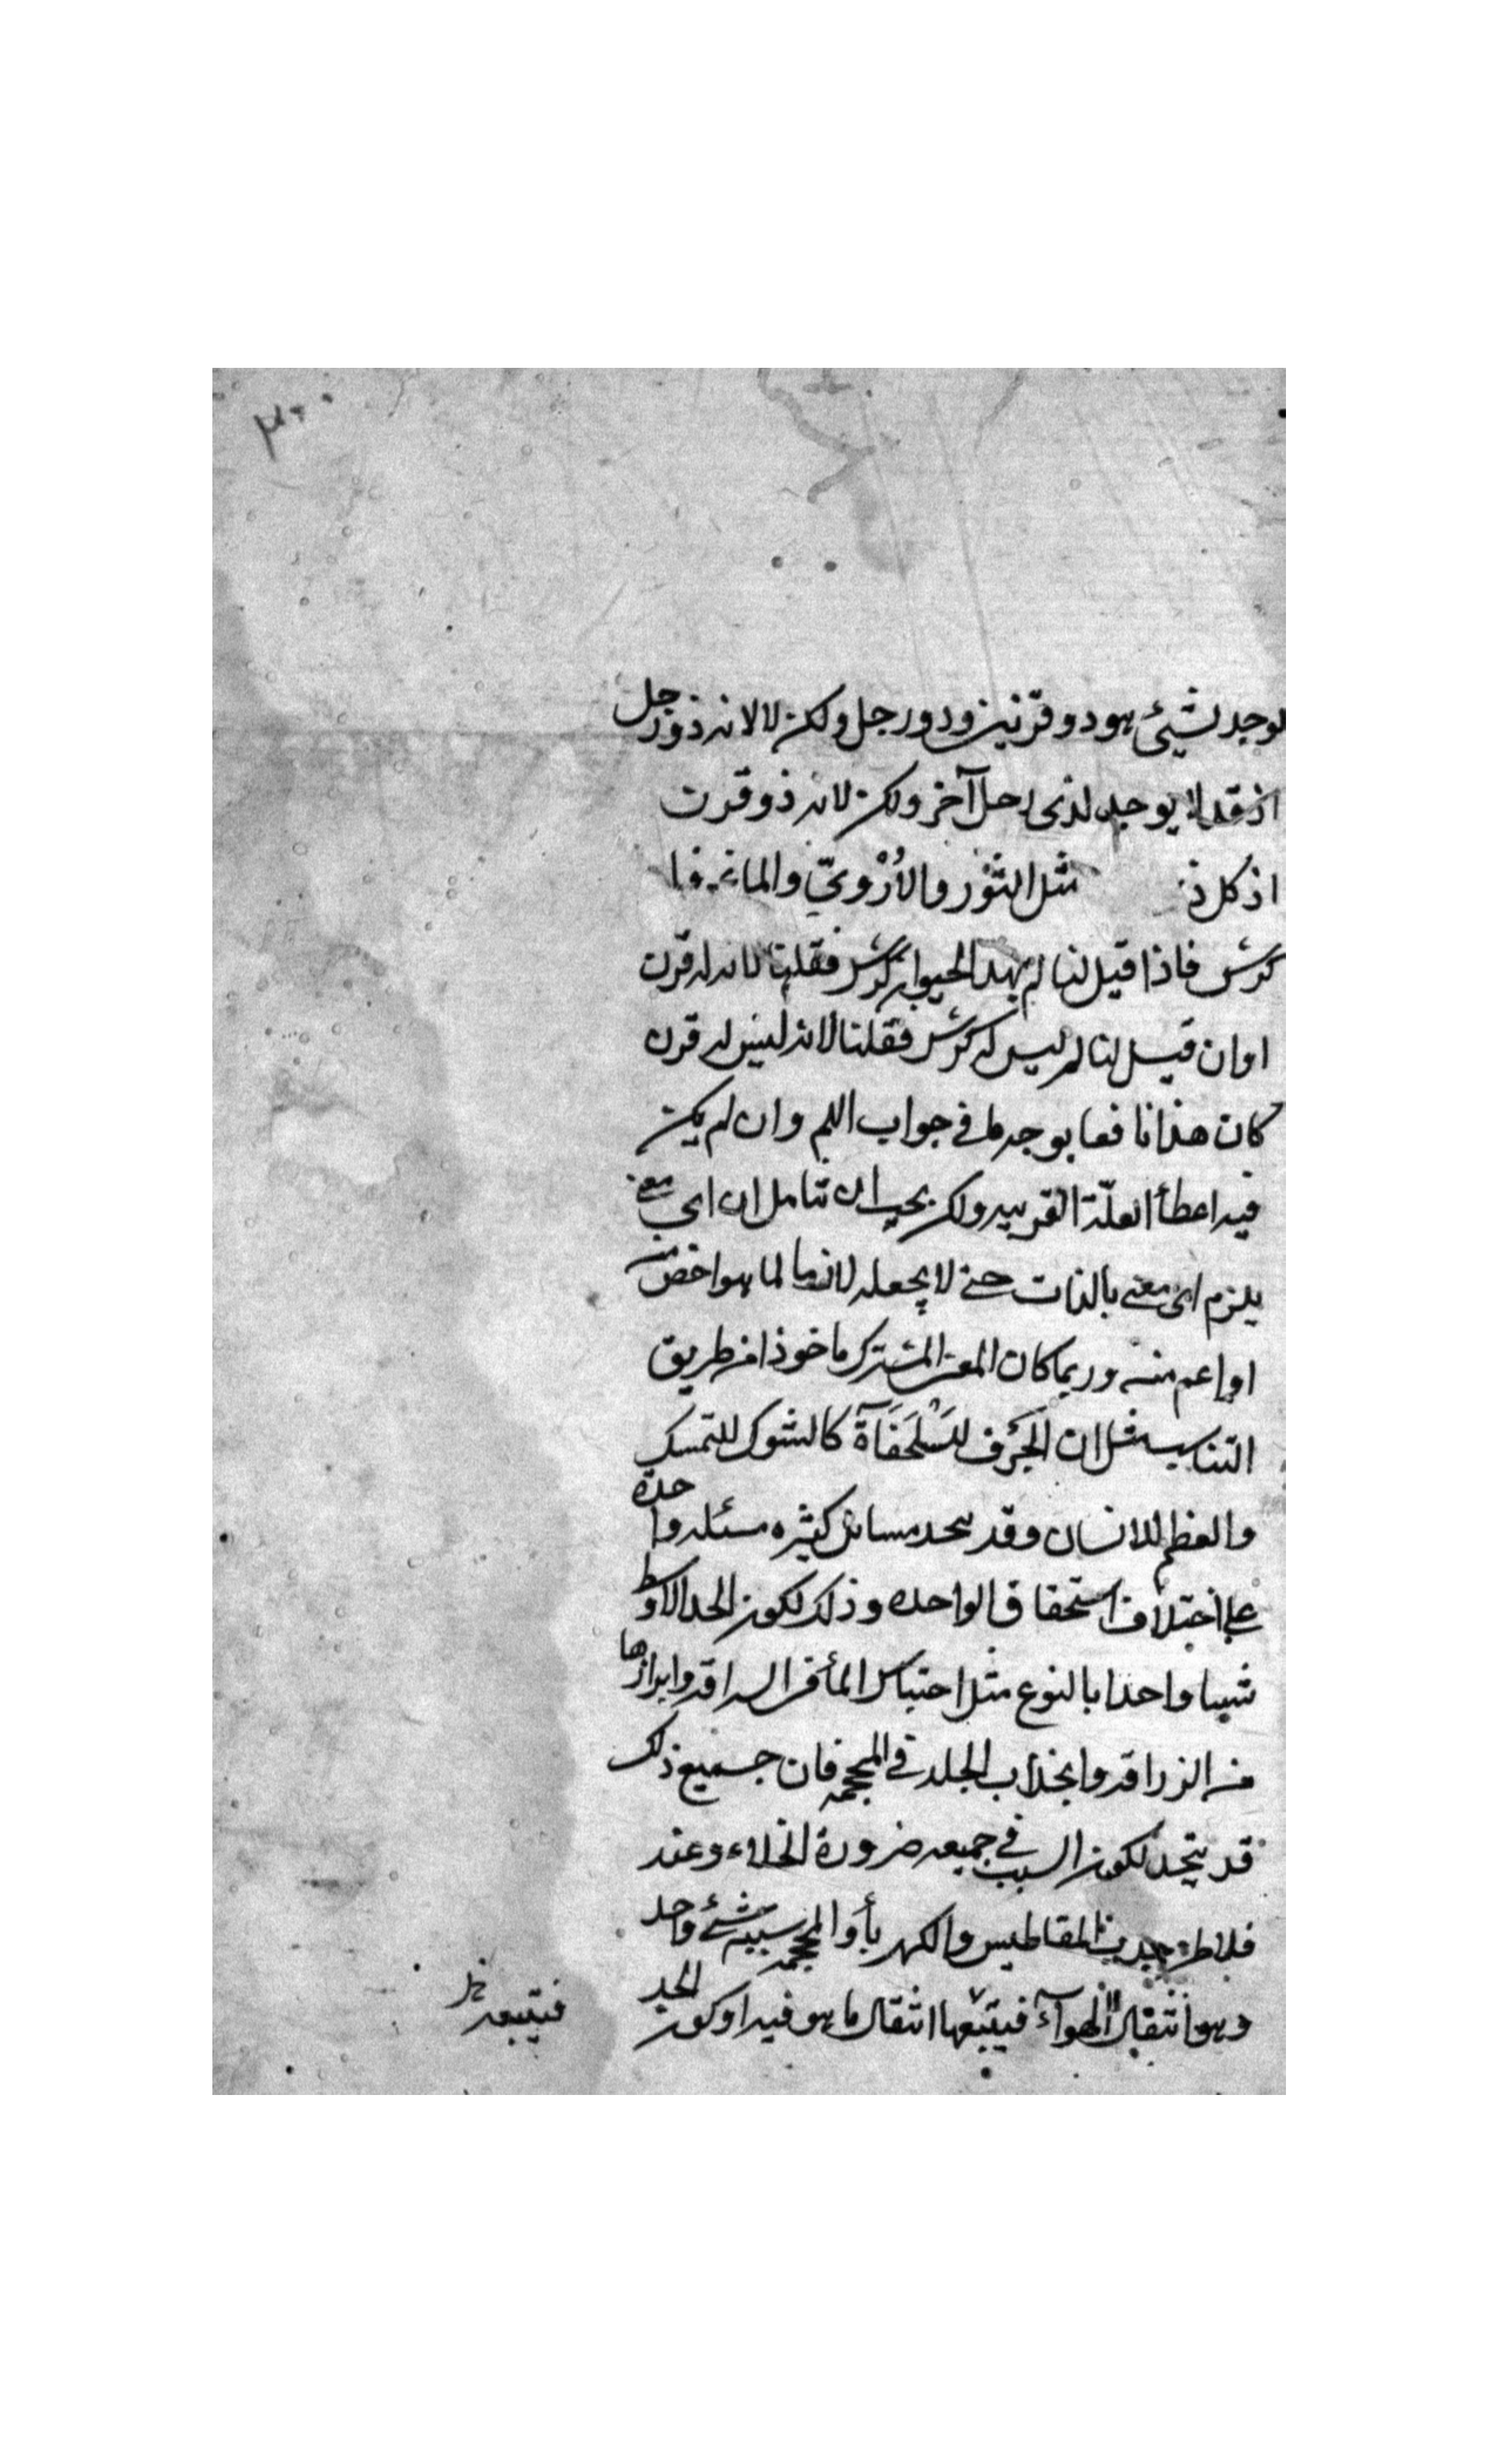 ٣٠٠
لوجد لشيئ هو ذو قرنين وذو رجل ولكن لا لانه ذو رجل
اذ قد لا يوجد لذى رجل آخر ولكن لانه ذو قرن
اذ كل ذ مثل الثور والأرْويّ والماعز فا
كرش فاذا قيل لنا لم لهذا الحيوان كرش فقلنا لانه له قرن
او ان قيل لنا لم ليس له كرش فقلنا لانه ليس له قرن
كان هذا نافعا بوجه ما في جواب اللم وان لم يكن
فيه اعطأ العلّة القريبه ولكن يجب ان تتامل ان اى معنى
يلزم اى معنى بالذات حتى لا يجعله لازما لما هو اخص من
او اعم منه وربما كان المعنى المشترك ماخوذا من طريق
التناسب مثل ان الخزف للسلحفاة كالشوك للتمسك
والعظم للانسان وقد يتحد مسائل كثيره مسئله واحدة
على اختلاف استحقاق الواحده وذلك لكون الحد الاوسط
شيئا واحدا بالنوع مثل احتباس المأ في السراقه وابرازها
من الزراقه وانجذاب الجلد في المحجمه فان جميع ذلك
قد يتحد لكون السبب في جميعه ضرورة الخلاء وعند
فلاطن جذب المقناطيس والكهربأ والمحجمه سببه شئ واحد
وهو انتقال الهوآء فيتبعها انتقال ما هو فيه او كون الحد
فيتبعه خل